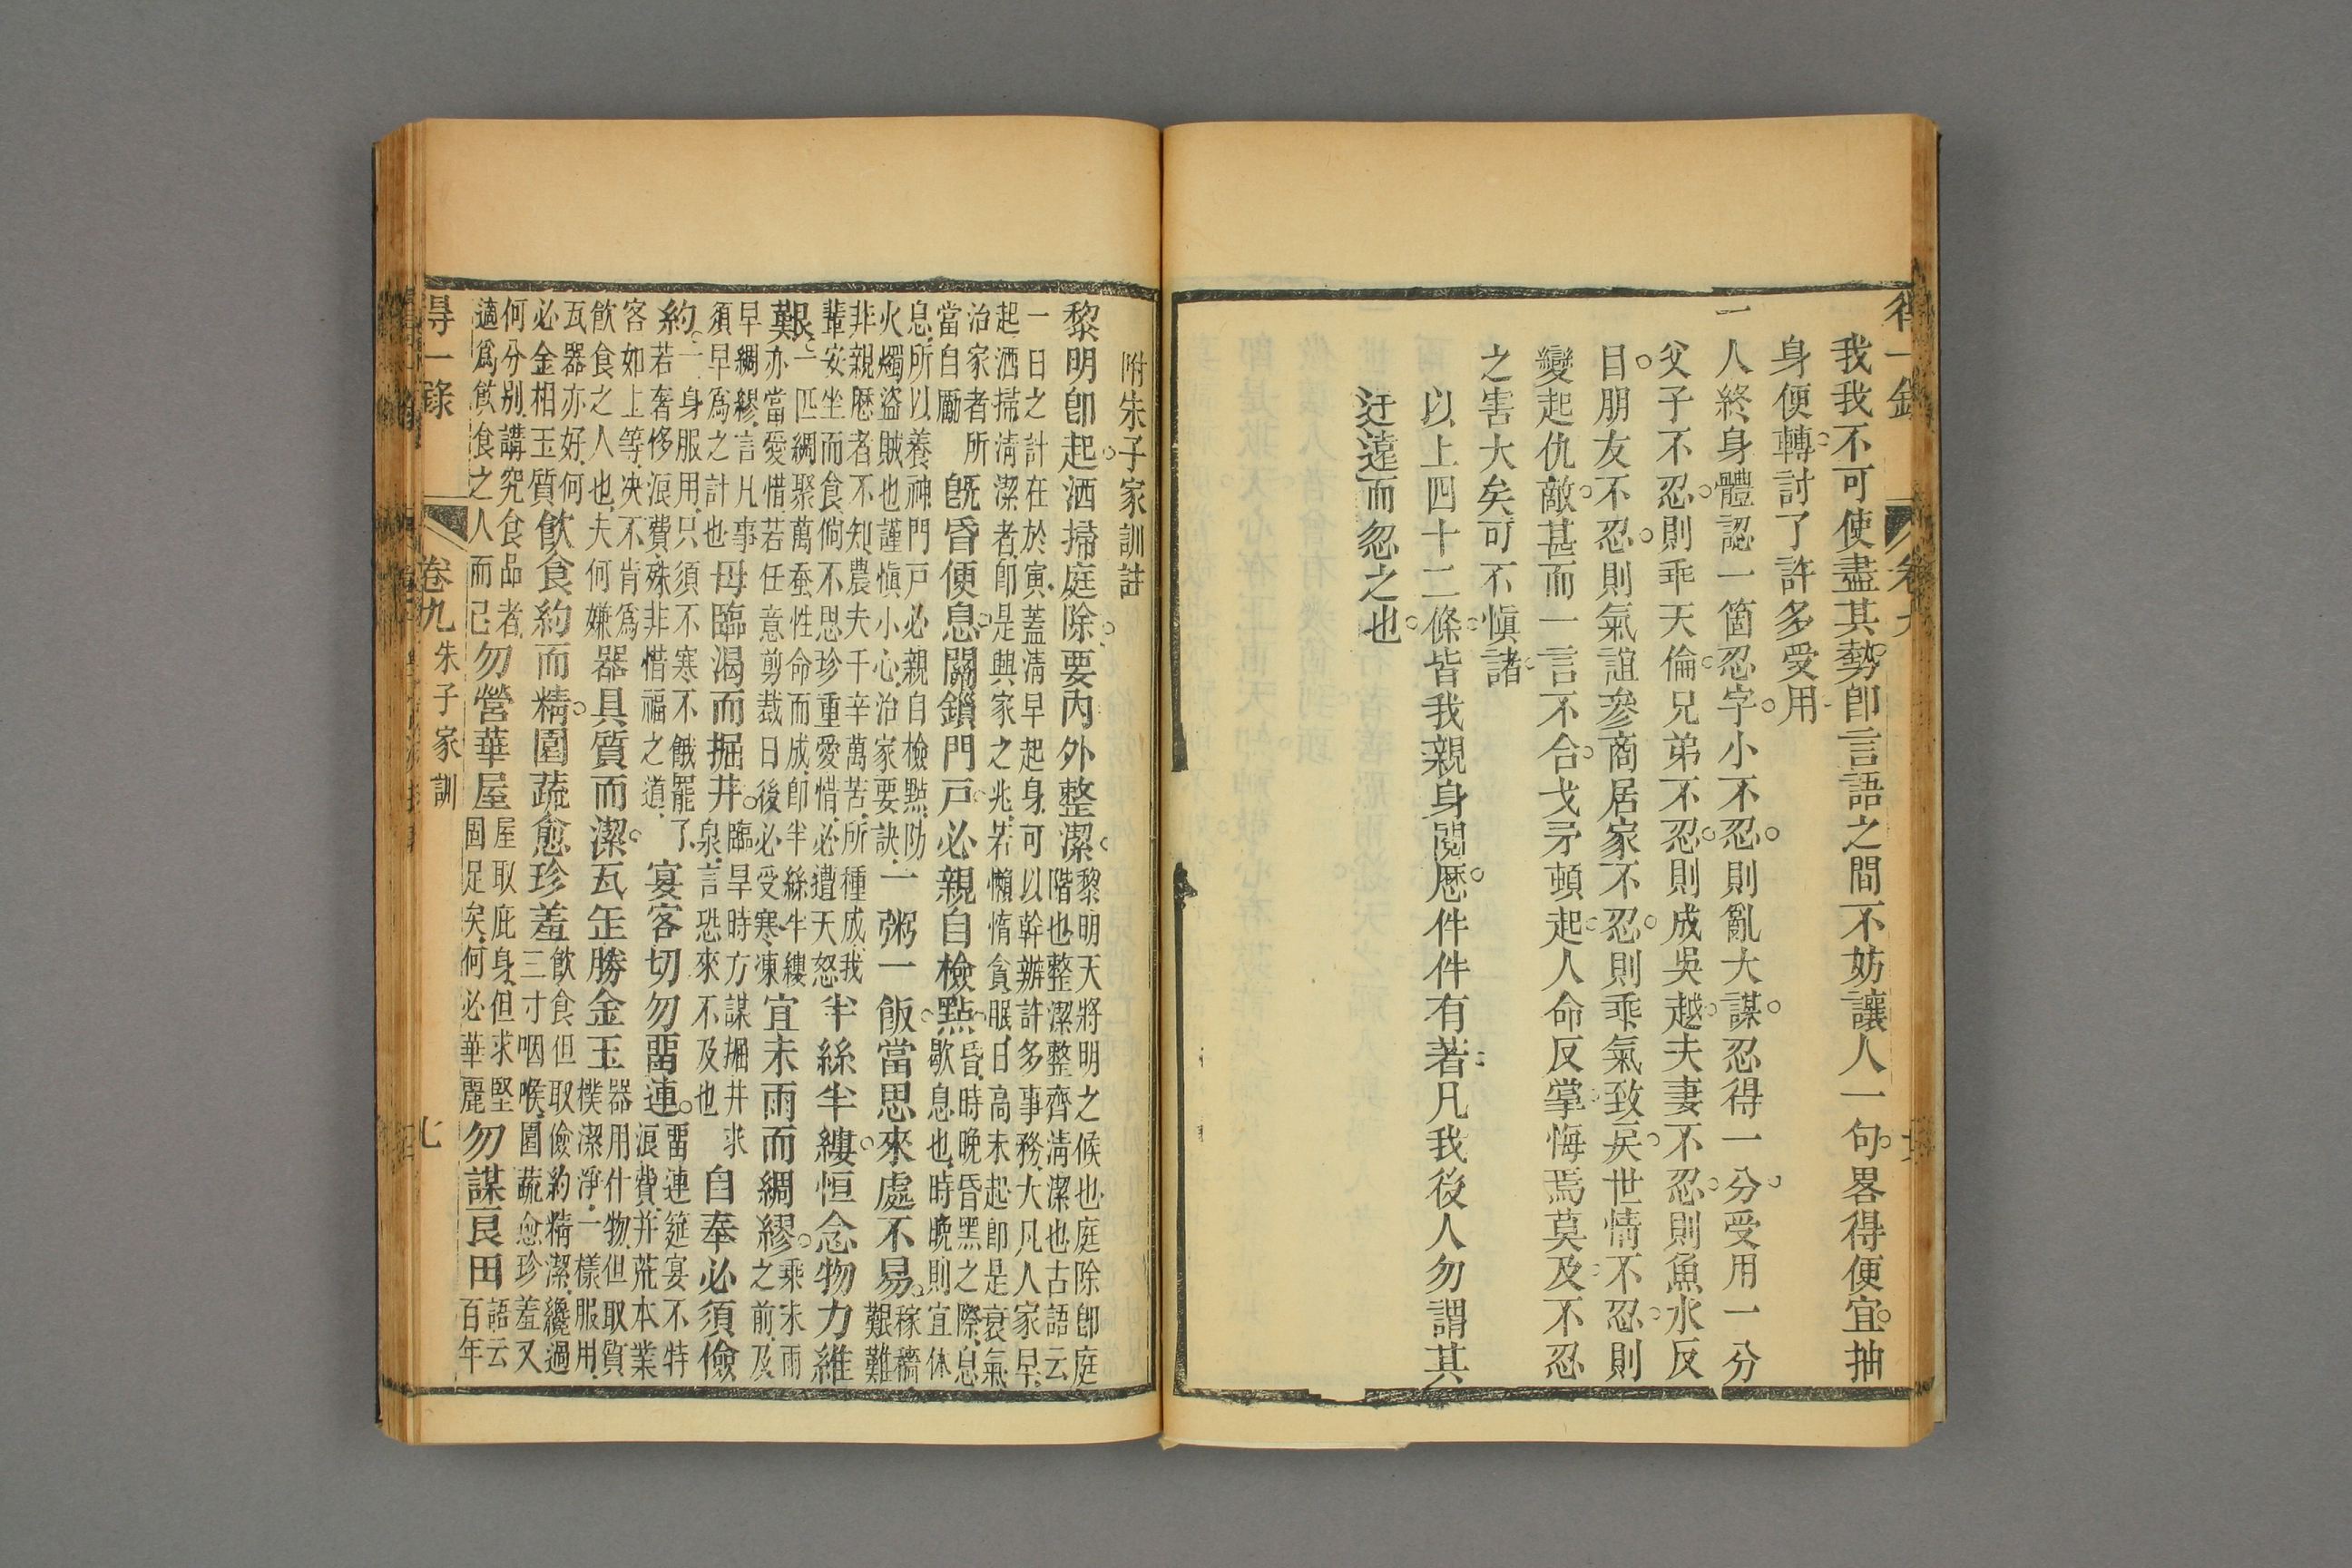 得一錄 卷九
我我不可使盡其勢卽言語之間不妨讓人一句畧得便宜抽
身便轉討了許多受用
一人終身體認一箇忍字小不忍則亂大謀忍得一分受用一分
父子不忍則乖天倫兄弟不忍則成吳越夫妻不忍則魚水反
目朋友不忍則氣誼參商居家不忍則乖氣致戾世情不忍則
變起仇敵甚而一言不合戈矛頓起人命反掌悔焉莫及不忍
之害大矣可不愼諸
以上四十二條皆我親身閱歷件件有著凡我後人勿謂其
迂遠而忽之也
附朱子家訓註
黎明卽起洒掃庭除要內外整潔黎明天將明之候也庭除卽庭階也整潔整齊淸潔也古語云
一日之計在於寅蓋淸早起身可以幹辦許多事務大凡人家早起洒掃淸潔者卽是興家之兆若懶惰貪眠日高未起卽是衰氣
治家者所當自勵旣昏便息關鎖門戶必親自檢點昏時晚昏黑之際息歇息也時晚則宜休
息所以養神門戶必親自檢點防火燭盜賊也謹愼小心治家要訣一粥一飯當思來處不易稼穡艱難
非親歷者不知農夫千辛萬苦所種成我輩安坐而食倘不思珍重愛惜必遭天怒半絲半縷恒念物力維
艱一匹綢聚萬蚕性命而成卽半絲半縷亦當愛惜若任意剪裁日後必受寒凍宜未雨而綢繆乘未雨之前及
早綢繆言凡事須早爲之計也毋臨渴而掘井臨旱時方謀掘井求泉言恐來不及也自奉必須儉
約一身服用只須不寒不餓罷了若奢侈浪費殊非惜福之道宴客切勿畱連畱連筵宴不特浪費并荒本業
客如上等決不肯爲飮食之人也夫何嫌器具質而潔瓦缶勝金玉器用什物但取質樸潔淨一樣服用
瓦器亦好何必金相玉質飮食約而精園蔬愈珍羞飮食但取儉約精潔纔過三寸咽喉園蔬愈珍羞又
何分別講究食品者適爲飮食之人而己勿營華屋屋取庇身但求堅固足矣何必華麗勿謀良田語云百年
得一錄 卷九 朱子家訓 七